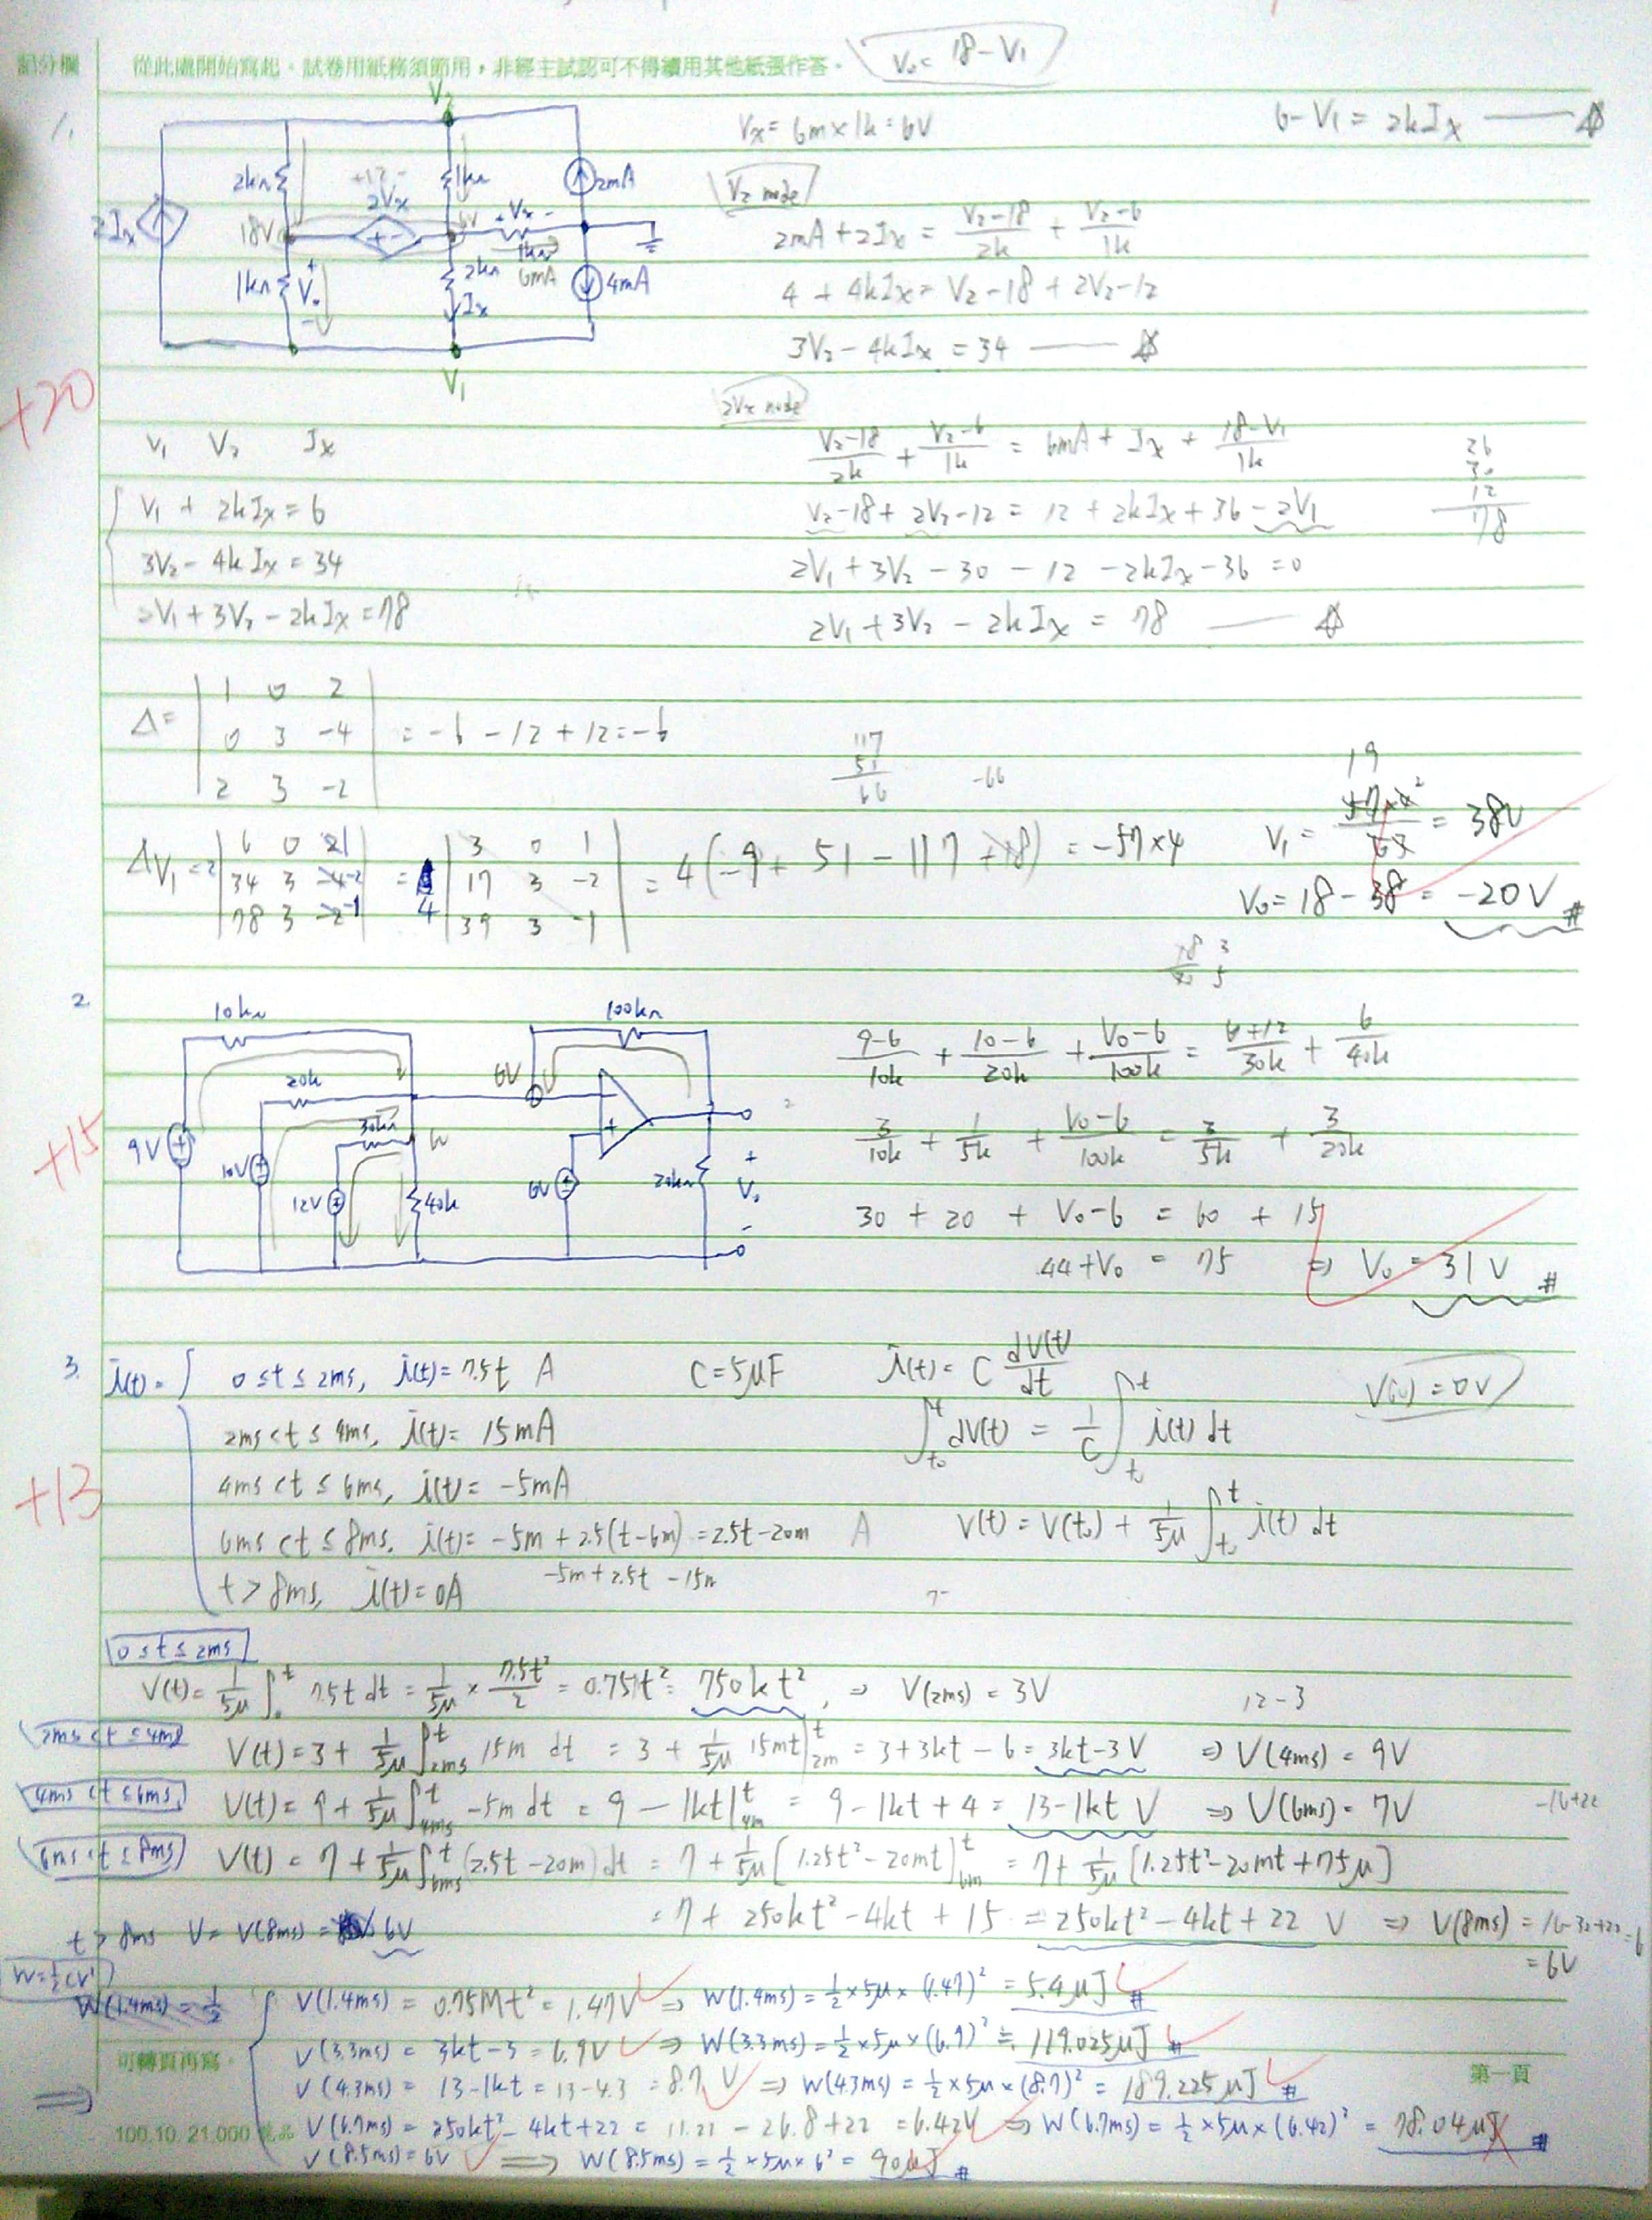 記分欄
從此處開始寫起。試卷用紙務須節用,非經主試認可不得續用其他紙張作答。
V₀ = 18 - V₁
1.
V₂
2kΩ
+12-
2Vx
1kΩ
2mA
2Ix
18V
+ -
6V
+ Vx -
1kΩ
6mA
1kΩ
+
V₀
-
2kΩ
Ix
4mA
V₁
Vx = 6m × 1k = 6V
6 - V₁ = 2kIx
V₂ node
2mA + 2Ix = (V₂-18)/2k + (V₂-6)/1k
4 + 4kIx = V₂ - 18 + 2V₂ - 12
3V₂ - 4kIx = 34
+20
2Vx node
(V₂-18)/2k + (V₂-6)/1k = 6mA + Ix + (18-V₁)/1k
V₂-18 + 2V₂-12 = 12 + 2kIx + 36 - 2V₁
2V₁ + 3V₂ - 30 - 12 - 2kIx - 36 = 0
2V₁ + 3V₂ - 2kIx = 78
V₁ V₂ Ix
V₁ + 2kIx = 6
3V₂ - 4kIx = 34
2V₁ + 3V₂ - 2kIx = 78
Δ = | 1 0 2 |
| 0 3 -4 | = -6 - 12 + 12 = -6
| 2 3 -2 |
117
51
66
-66
3 0 1
17 3 -2
39 3 -1
= 4(-9 + 51 - 117 + 18) = -57×4
= 38V
V₀ = 18 - 38 = -20V #
2
10kΩ
20k
30kΩ
9V
10V
12V
40k
6V
100kΩ
6V
20kΩ
+
V₀
-
+15
(9-6)/10k + (10-6)/20k + (V₀-6)/100k = (6+12)/30k + 6/40k
3/10k + 1/5k + (V₀-6)/100k = 3/5k + 3/20k
30 + 20 + V₀-6 = 60 + 15
44 + V₀ = 75 ⇒ V₀ = 31V #
3.
i(t) = { 0 ≤ t ≤ 2ms, i(t) = 7.5t A
2ms < t ≤ 4ms, i(t) = 15mA
4ms < t ≤ 6ms, i(t) = -5mA
6ms < t ≤ 8ms, i(t) = -5m + 2.5(t-6m) = 2.5t-20m A
-5m + 2.5t - 15m
t > 8ms, i(t) = 0A
+13
C = 5μF
i(t) = C dV(t)/dt
V(0) = 0V
∫ₜ₀ᵗ dV(t) = 1/C ∫ₜ₀ᵗ i(t) dt
V(t) = V(t₀) + 1/5μ ∫ₜ₀ᵗ i(t) dt
0 ≤ t ≤ 2ms
V(t) = 1/5μ ∫₀ᵗ 7.5t dt = 1/5μ × 7.5t²/2 = 0.75Mt² = 750kt², ⇒ V(2ms) = 3V
12-3
2ms < t ≤ 4ms
V(t) = 3 + 1/5μ ∫ᵗ2ms 15m dt = 3 + 1/5μ 15mt|ᵗ2m = 3+3kt-6 = 3kt-3 V ⇒ V(4ms) = 9V
4ms < t ≤ 6ms
V(t) = 9 + 1/5μ ∫ᵗ4ms -5m dt = 9 - 1kt|ᵗ4m = 9-1kt+4 = 13-1kt V ⇒ V(6ms) = 7V
-16+22
6ms < t ≤ 8ms
V(t) = 7 + 1/5μ ∫ᵗ6ms (2.5t-20m) dt = 7 + 1/5μ [1.25t²-20mt]ᵗ6m = 7 + 1/5μ [1.25t²-20mt+75μ]
= 7 + 250kt² - 4kt + 15 = 250kt² - 4kt + 22 V ⇒ V(8ms) = 16-32+22=6
= 6V
t > 8ms V = V(8ms) = 6V
W = ½CV²
V(1.4ms) = 0.75Mt² = 1.47V ⇒ W(1.4ms) = ½×5μ×(1.47)² = 5.4μJ #
V(3.3ms) = 3kt-3 = 6.9V ⇒ W(3.3ms) = ½×5μ×(6.9)² ≒ 119.025μJ #
V(4.3ms) = 13-1kt = 13-4.3 = 8.7V ⇒ W(4.3ms) = ½×5μ×(8.7)² = 189.225μJ #
V(6.7ms) = 250kt²-4kt+22 = 11.22 - 26.8+22 = 6.42V ⇒ W(6.7ms) = ½×5μ×(6.42)² = 78.04μJ #
V(8.5ms) = 6V ⇒ W(8.5ms) = ½×5μ×6² = 90μJ #
可轉頁再寫。
第一頁
100.10. 21,000